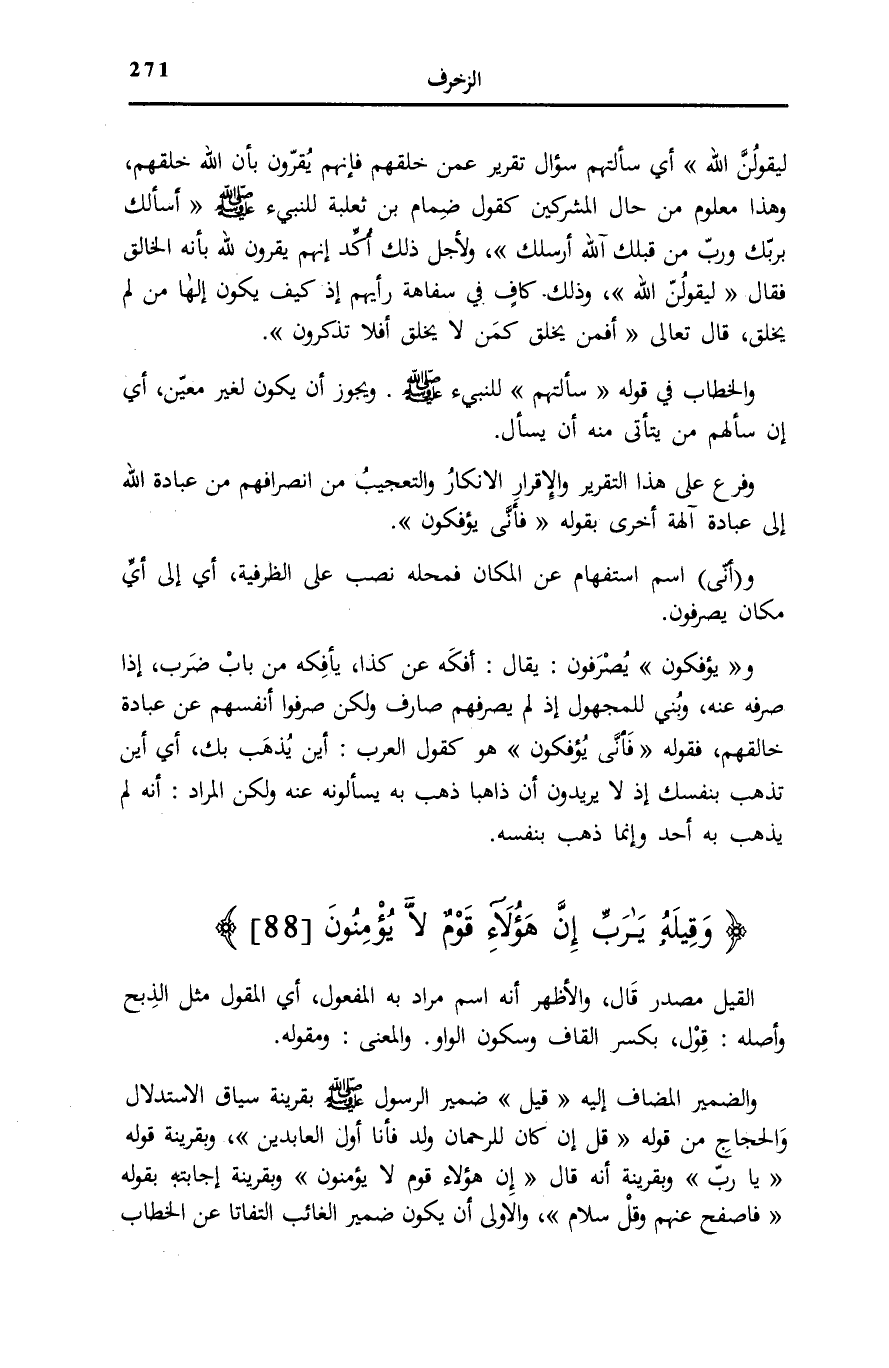 271
الزخرف
ليقولُنَّ الله » أي سألتهم سؤال تقرير عمن خلقهم فإنهم يُقرّون بأن الله خلقهم،
وهذا معلوم من حال المشركين كقول ضِمام بن ثعلبة للنبيء ﷺ « أسألك
بربّك وربّ من قبلك آلله أرسلك »، ولأجل ذلك أُكِّد إنهم يقرون لله بأنه الخالق
فقال « ليقولُنّ الله »، وذلك كافٍ في سفاهة رأيهم إذ كيف يكون إلٰها من لم
يخلق، قال تعالى « أفمن يخلق كمَن لا يخلق أفلا تذكرون ».
والخطاب في قوله « سألتهم » للنبيء ﷺ . ويجوز أن يكون لغير معيّن، أي
إن سألهم من يتأتى منه أن يسأل.
وفرع على هذا التقرير والإقرارِ الانكارُ والتعجيبُ من انصرافهم من عبادة الله
إلى عبادة آلهة أخرى بقوله « فأَنَّى يؤفكون ».
و(أنّى) اسم استفهام عن المكان فمحله نصب على الظرفية، أي إلى أيِّ
مكان يصرفون.
و« يؤفكون » يُصْرَفون : يقال : أفكَه عن كذا، يأفِكه من بابْ ضَرب، إذا
صرفه عنه، وبُني للمجهول إذ لم يصرفهم صارف ولكن صرفوا أنفسهم عن عبادة
خالقهم، فقوله « فَأَنَّى يُؤفكون » هو كقول العرب : أين يُذهَب بك، أي أين
تذهب بنفسك إذ لا يريدون أن ذاهبا ذهب به يسألونه عنه ولكن المراد : أنه لم
يذهب به أحد وإنما ذهب بنفسه.
﴿ وَقِيلَهُ يَـٰرَبِّ إِنَّ هَٰٓؤُلَآءِ قَوْمٌ لاَّ يُؤْمِنُونَ [88] ﴾
القيل مصدر قَال، والأظهر أنه اسم مراد به المفعول، أي المقول مثل الذِبح
وأصله : قِوْل، بكسر القاف وسكون الواو. والمعنى : ومقوله.
والضمير المضاف إليه « قيل » ضمير الرسول ﷺ بقرينة سياق الاستدلال
وَالحجاجِ من قوله « قل إن كان للرحمان ولد فأنا أول العابدين »، وبقرينة قوله
« يا ربّ » وبقرينة أنه قال « إِن هؤلاء قوم لا يؤمنون » وبقرينة إجابته بقوله
« فاصفح عنهم وقلْ سلام »، والاولى أن يكون ضمير الغائب التفاتا عن الخطاب